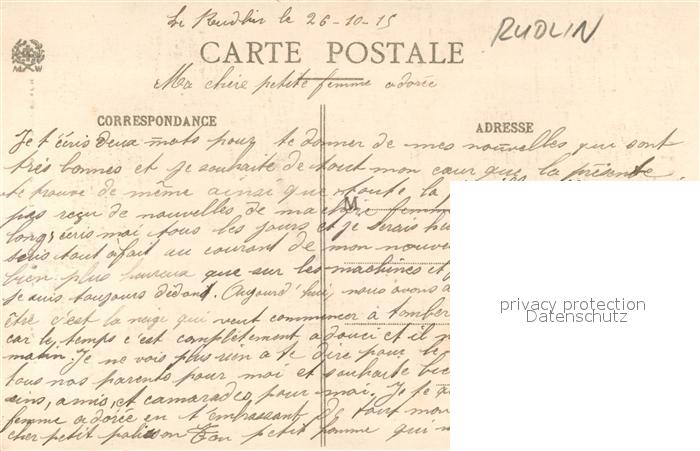 Le Rudlin le 26-10-15
RUDLIN
CARTE POSTALE
M W
Ma chère petite femme adorée
CORRESPONDANCE
ADRESSE
Je t'écris deux mots pour te donner de mes nouvelles qui sont
très bonnes et je souhaite de tout mon cœur que la présente
te trouve de même ainsi que toute la
pas reçu de nouvelles de ma chère femme
M
long, écris moi tous les jours et je serais
suis tout à fait au courant de mon nouveau
bien plus heureux que sur les machines et
je suis toujours dedant. Aujourd'hui, nous avons
être c'est la neige qui veut commencer à tomber
car le temps c'est complètement adouci et il
matin. Je ne vois plus rien a te dire pour le
tous nos parents pour moi et souhaite
sins, amis, et camarades, pour moi. Je te
femme adorée en t'embrassant de tout mon
cher petit polisson Ton petit homme qui
privacy protection
Datenschutz